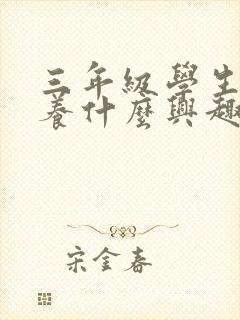 三年級學生
養什麼興趣
宋金春